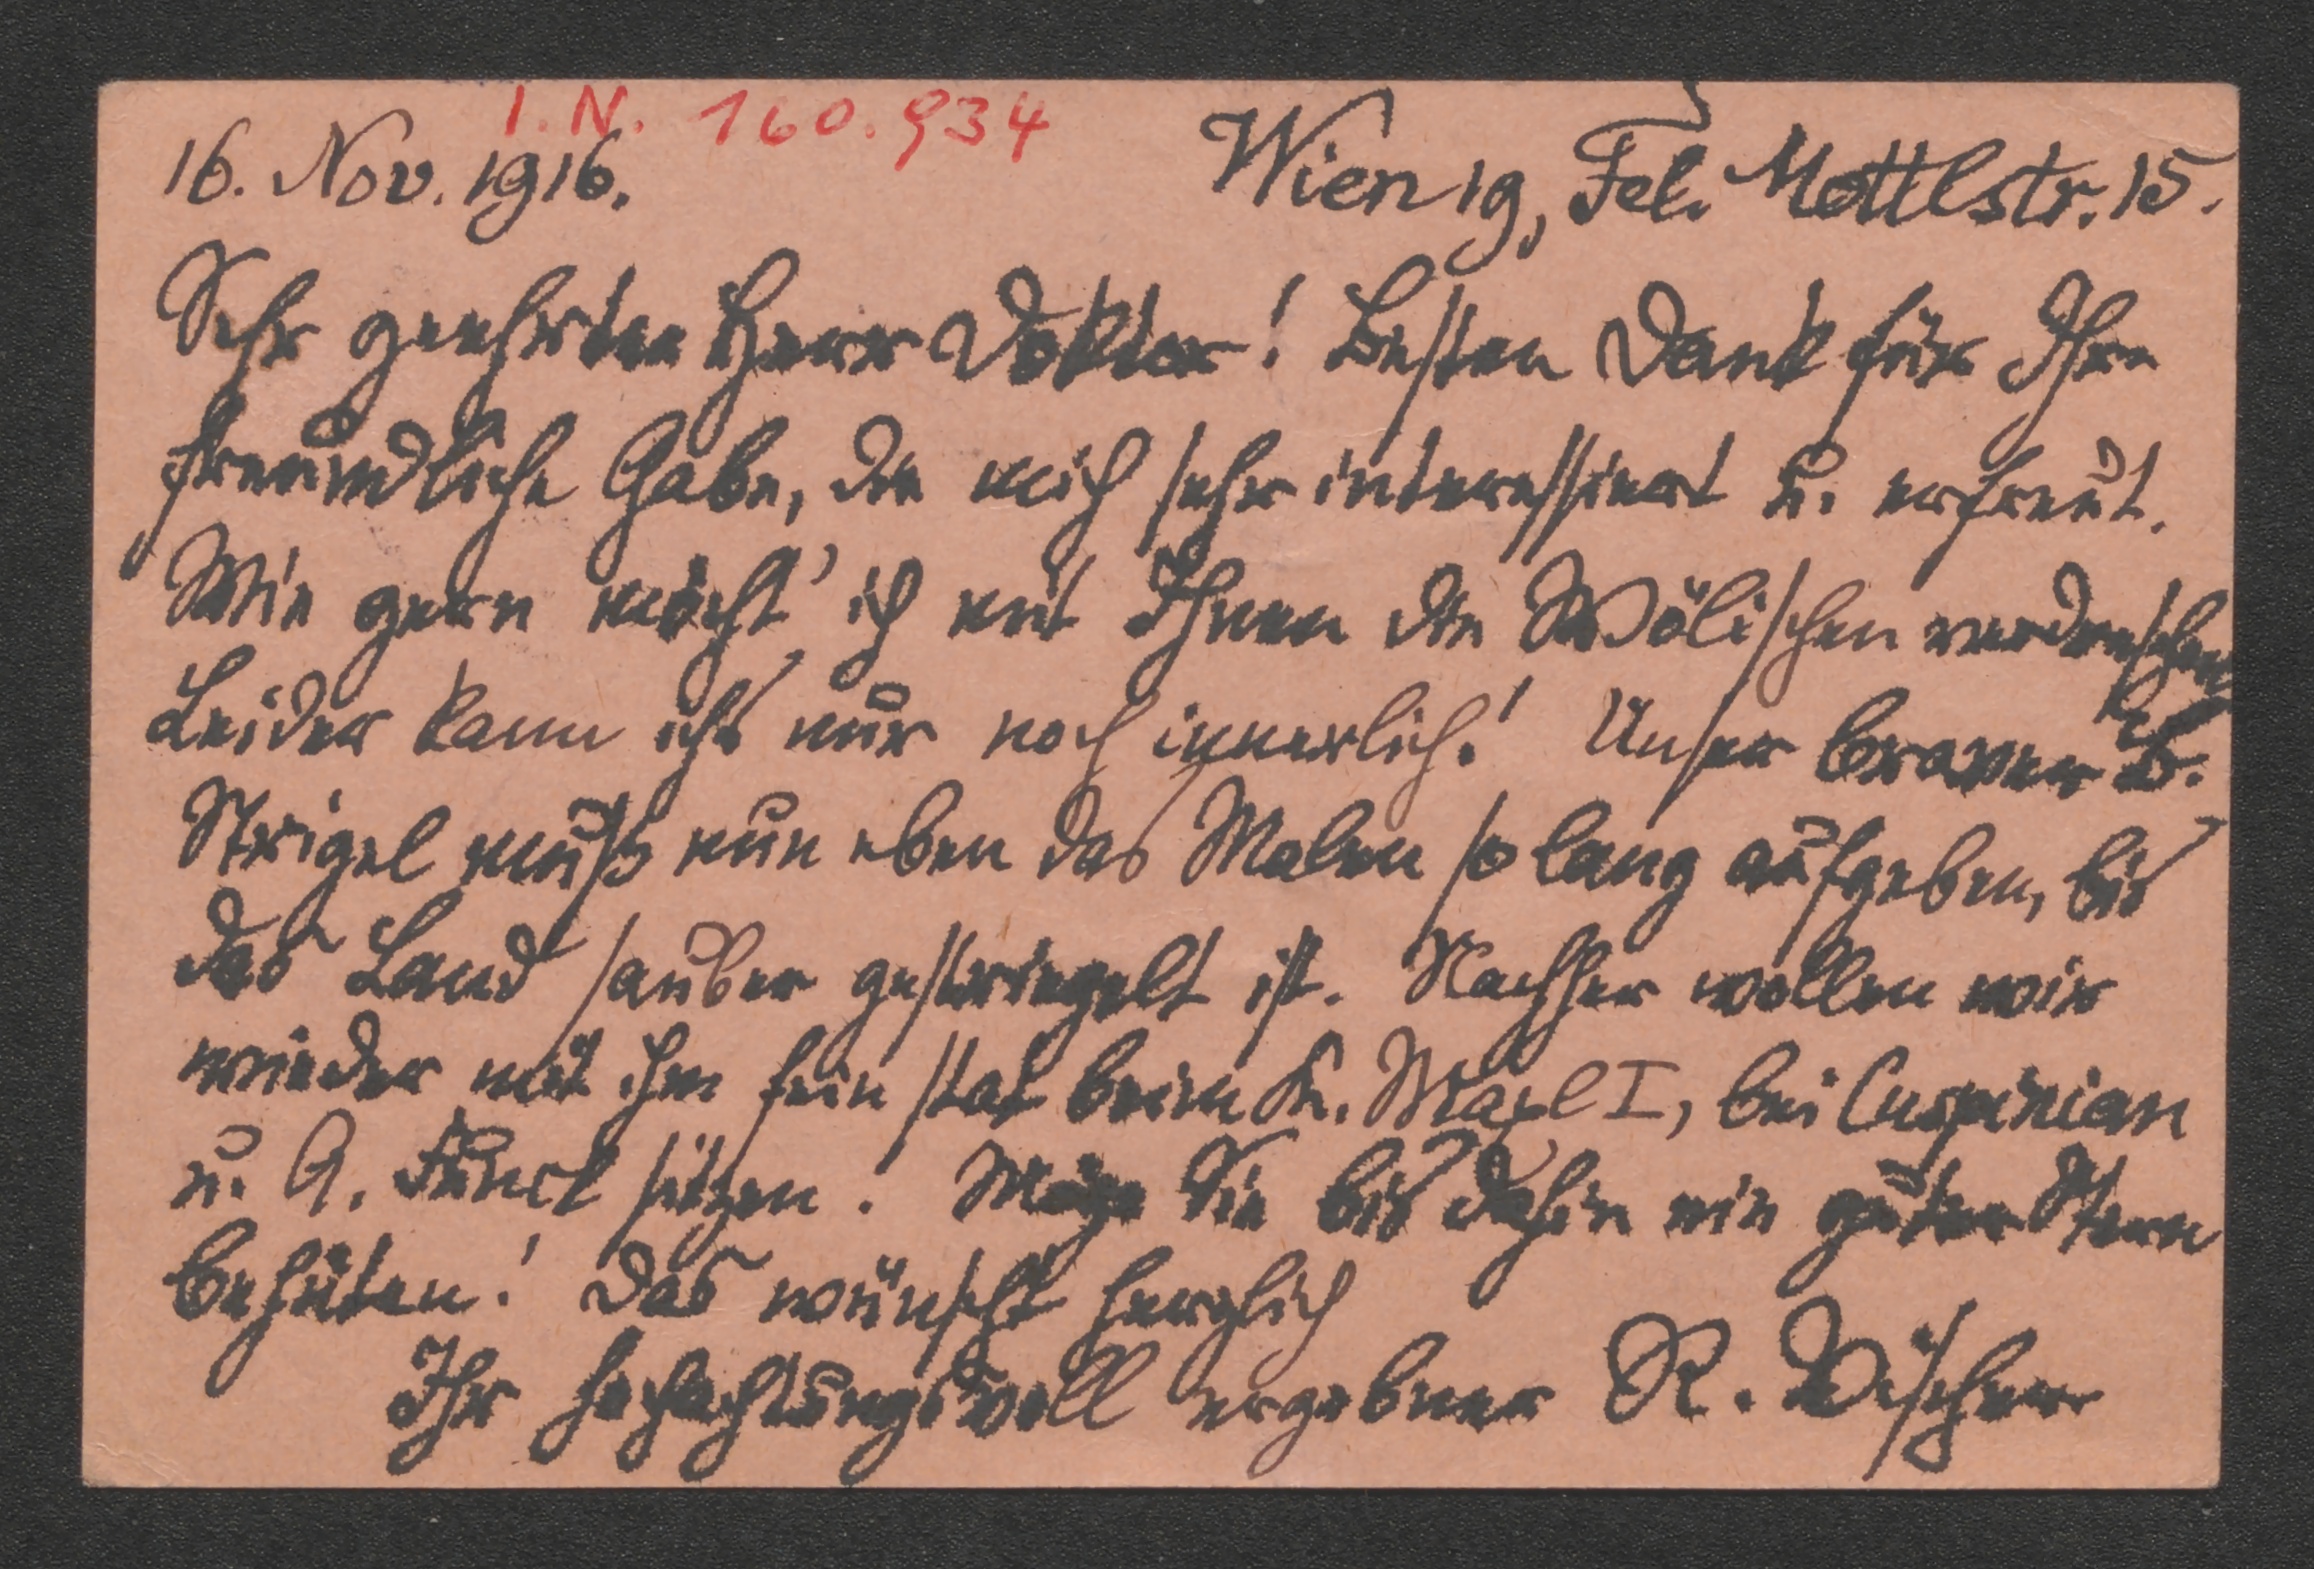 I. N. 160.934
16. Nov. 1916. Wien 19, Fel. Mottlstr. 15.
Sehr geehrter Herr Doktor! Besten Dank für Ihre
freundliche Gabe, die mich sehr interessiert u. erfreut.
Wie gern möcht' ich mit Ihnen die Wölischen verdreschen
Leider kann ich's nur noch innerlich! Unser braver B.
Strigel muß nun eben das Malen so lang aufgeben, bis
das Land sauber gestriegelt ist. Nachher wollen wir
wieder mit ihm fein stat beim K. Maxl I, bei Cuspinian
u. A. Funck sitzen! Möge Sie bis dahin ein guter Stern
behüten! Das wünscht herzlich
Ihr hochachtungsvoll ergebner R.